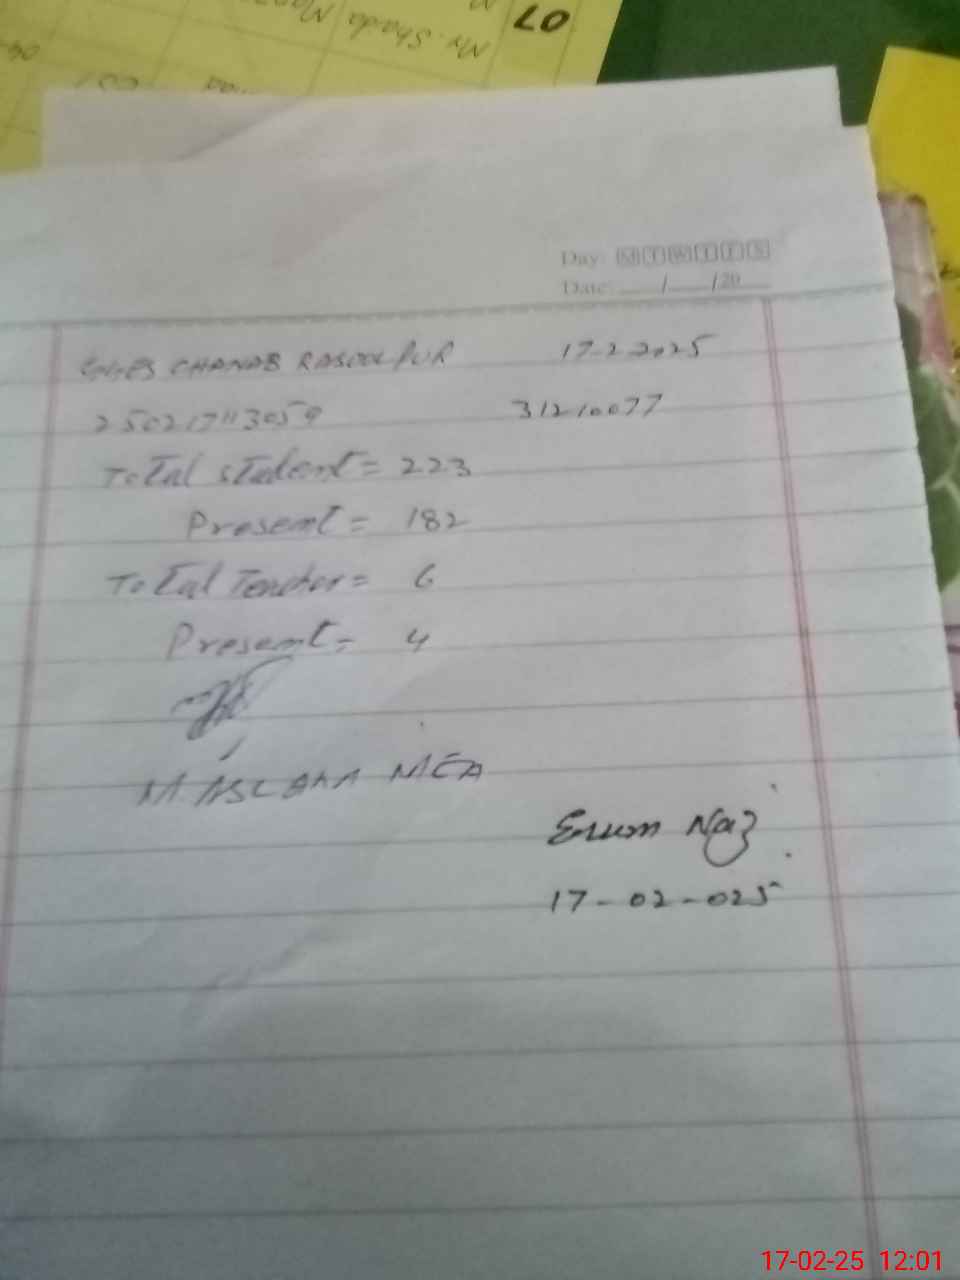 07
Mr. Shada
Day: M T W T F S
Date: / /20
CHANAB RASOOLPUR 17-2-2025
250217113059 31210077
Total student = 223
Present = 182
Total Teacher = 6
Present = 4
M. ASLAM MEA
Erum Naz
17-02-025
17-02-25 12:01